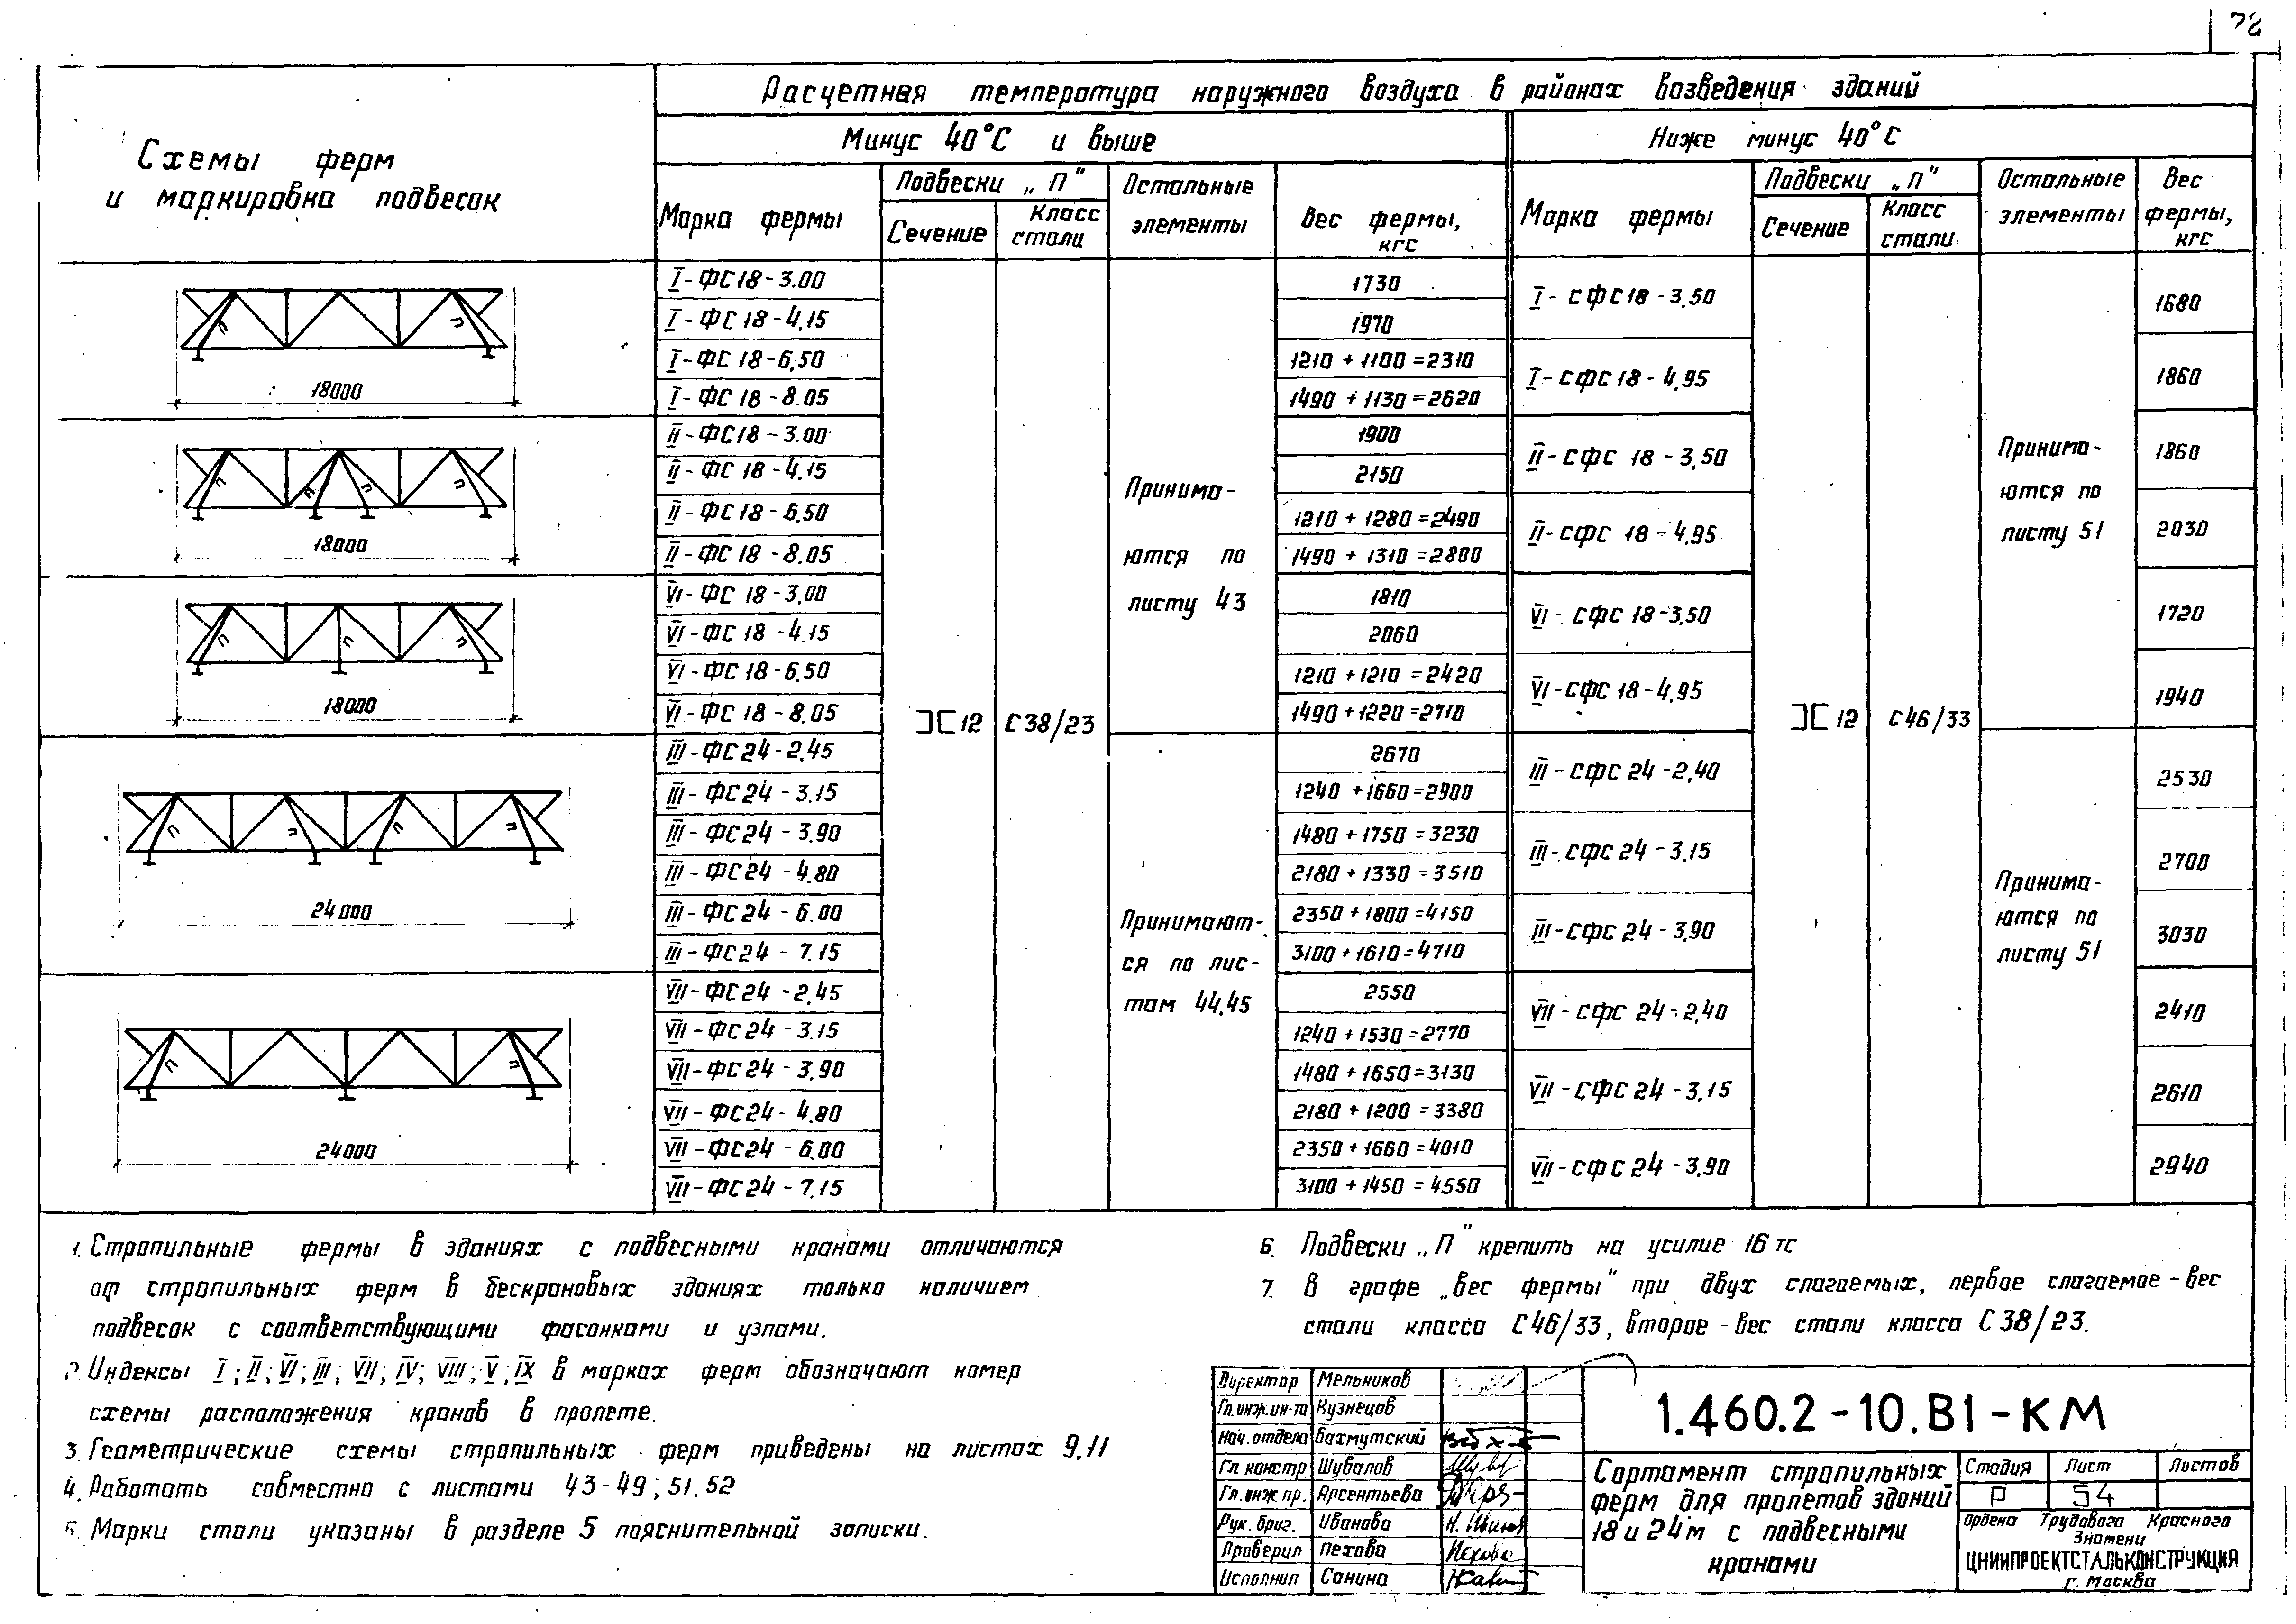 78
Схемы ферм
и маркировка подвесок
Расчетная температура наружного воздуха в районах возведения зданий
Минус 40°С и выше
Ниже минус 40°С
Марка фермы
Подвески „П"
Сечение
Класс стали
Остальные элементы
Вес фермы, кгс
Марка фермы
Подвески „П"
Сечение
Класс стали
Остальные элементы
Вес фермы, кгс
п п
18000
п п п п
18000
п п п
18000
п п п п
24000
п п
24000
I-ФС18-3.00 1730
I-ФС18-4,15 1970
I-ФС18-6,50 1210+1100=2310
I-ФС18-8.05 1490+1130=2620
II-ФС18-3.00 1900
II-ФС18-4,15 2150
II-ФС18-6,50 1210+1280=2490
II-ФС18-8.05 1490+1310=2800
VI-ФС18-3,00 1810
VI-ФС18-4.15 2060
VI-ФС18-6.50 1210+1210=2420
VI-ФС18-8.05 1490+1220=2710
III-ФС24-2,45 2670
III-ФС24-3,15 1240+1660=2900
III-ФС24-3,90 1480+1750=3230
III-ФС24-4.80 2180+1330=3510
III-ФС24-6.00 2350+1800=4150
III-ФС24-7.15 3100+1610=4710
VII-ФС24-2,45 2550
VII-ФС24-3.15 1240+1530=2770
VII-ФС24-3,90 1480+1650=3130
VII-ФС24-4.80 2180+1200=3380
VII-ФС24-6.00 2350+1660=4010
VII-ФС24-7,15 3100+1450=4550
][ 12
С38/23
Принима-
ются по
листу 43
Принимают-
ся по лис-
там 44,45
I-СФС18-3,50 1680
I-СФС18-4,95 1860
II-СФС18-3,50 1860
II-СФС18-4,95 2030
VI-СФС18-3,50 1720
VI-СФС18-4,95 1940
III-СФС24-2,40 2530
III-СФС24-3,15 2700
III-СФС24-3,90 3030
VII-СФС24-2,40 2410
VII-СФС24-3,15 2610
VII-СФС24-3,90 2940
][ 12
С46/33
Принима-
ются по
листу 51
Принима-
ются по
листу 51
1. Стропильные фермы в зданиях с подвесными кранами отличаются
от стропильных ферм в бескрановых зданиях только наличием
подвесок с соответствующими фасонками и узлами.
2. Индексы I; II; VI; III; VII; IV; VIII; V; IX в марках ферм обозначают номер
схемы расположения кранов в пролете.
3. Геометрические схемы стропильных ферм приведены на листах 9,11
4. Работать совместно с листами 43-49; 51.52
5. Марки стали указаны в разделе 5 пояснительной записки.
6. Подвески „П" крепить на усилие 16 тс
7. В графе „Вес фермы" при двух слагаемых, первое слагаемое - вес
стали класса С46/33, второе - вес стали класса С38/23.
Директор Мельников
Гл.инж.ин-та Кузнецов
Нач.отдела Бахмутский
Гл. констр. Шувалов
Гл. инж. пр. Арсентьева
Рук. бриг. Иванова
Проверил Пехова
Исполнил Санина
1.460.2-10.В1-КМ
Сортамент стропильных
ферм для пролетов зданий
18 и 24м с подвесными
кранами
Стадия Лист Листов
Р 54
Ордена Трудового Красного
Знамени
ЦНИИПРОЕКТСТАЛЬКОНСТРУКЦИЯ
г. Москва